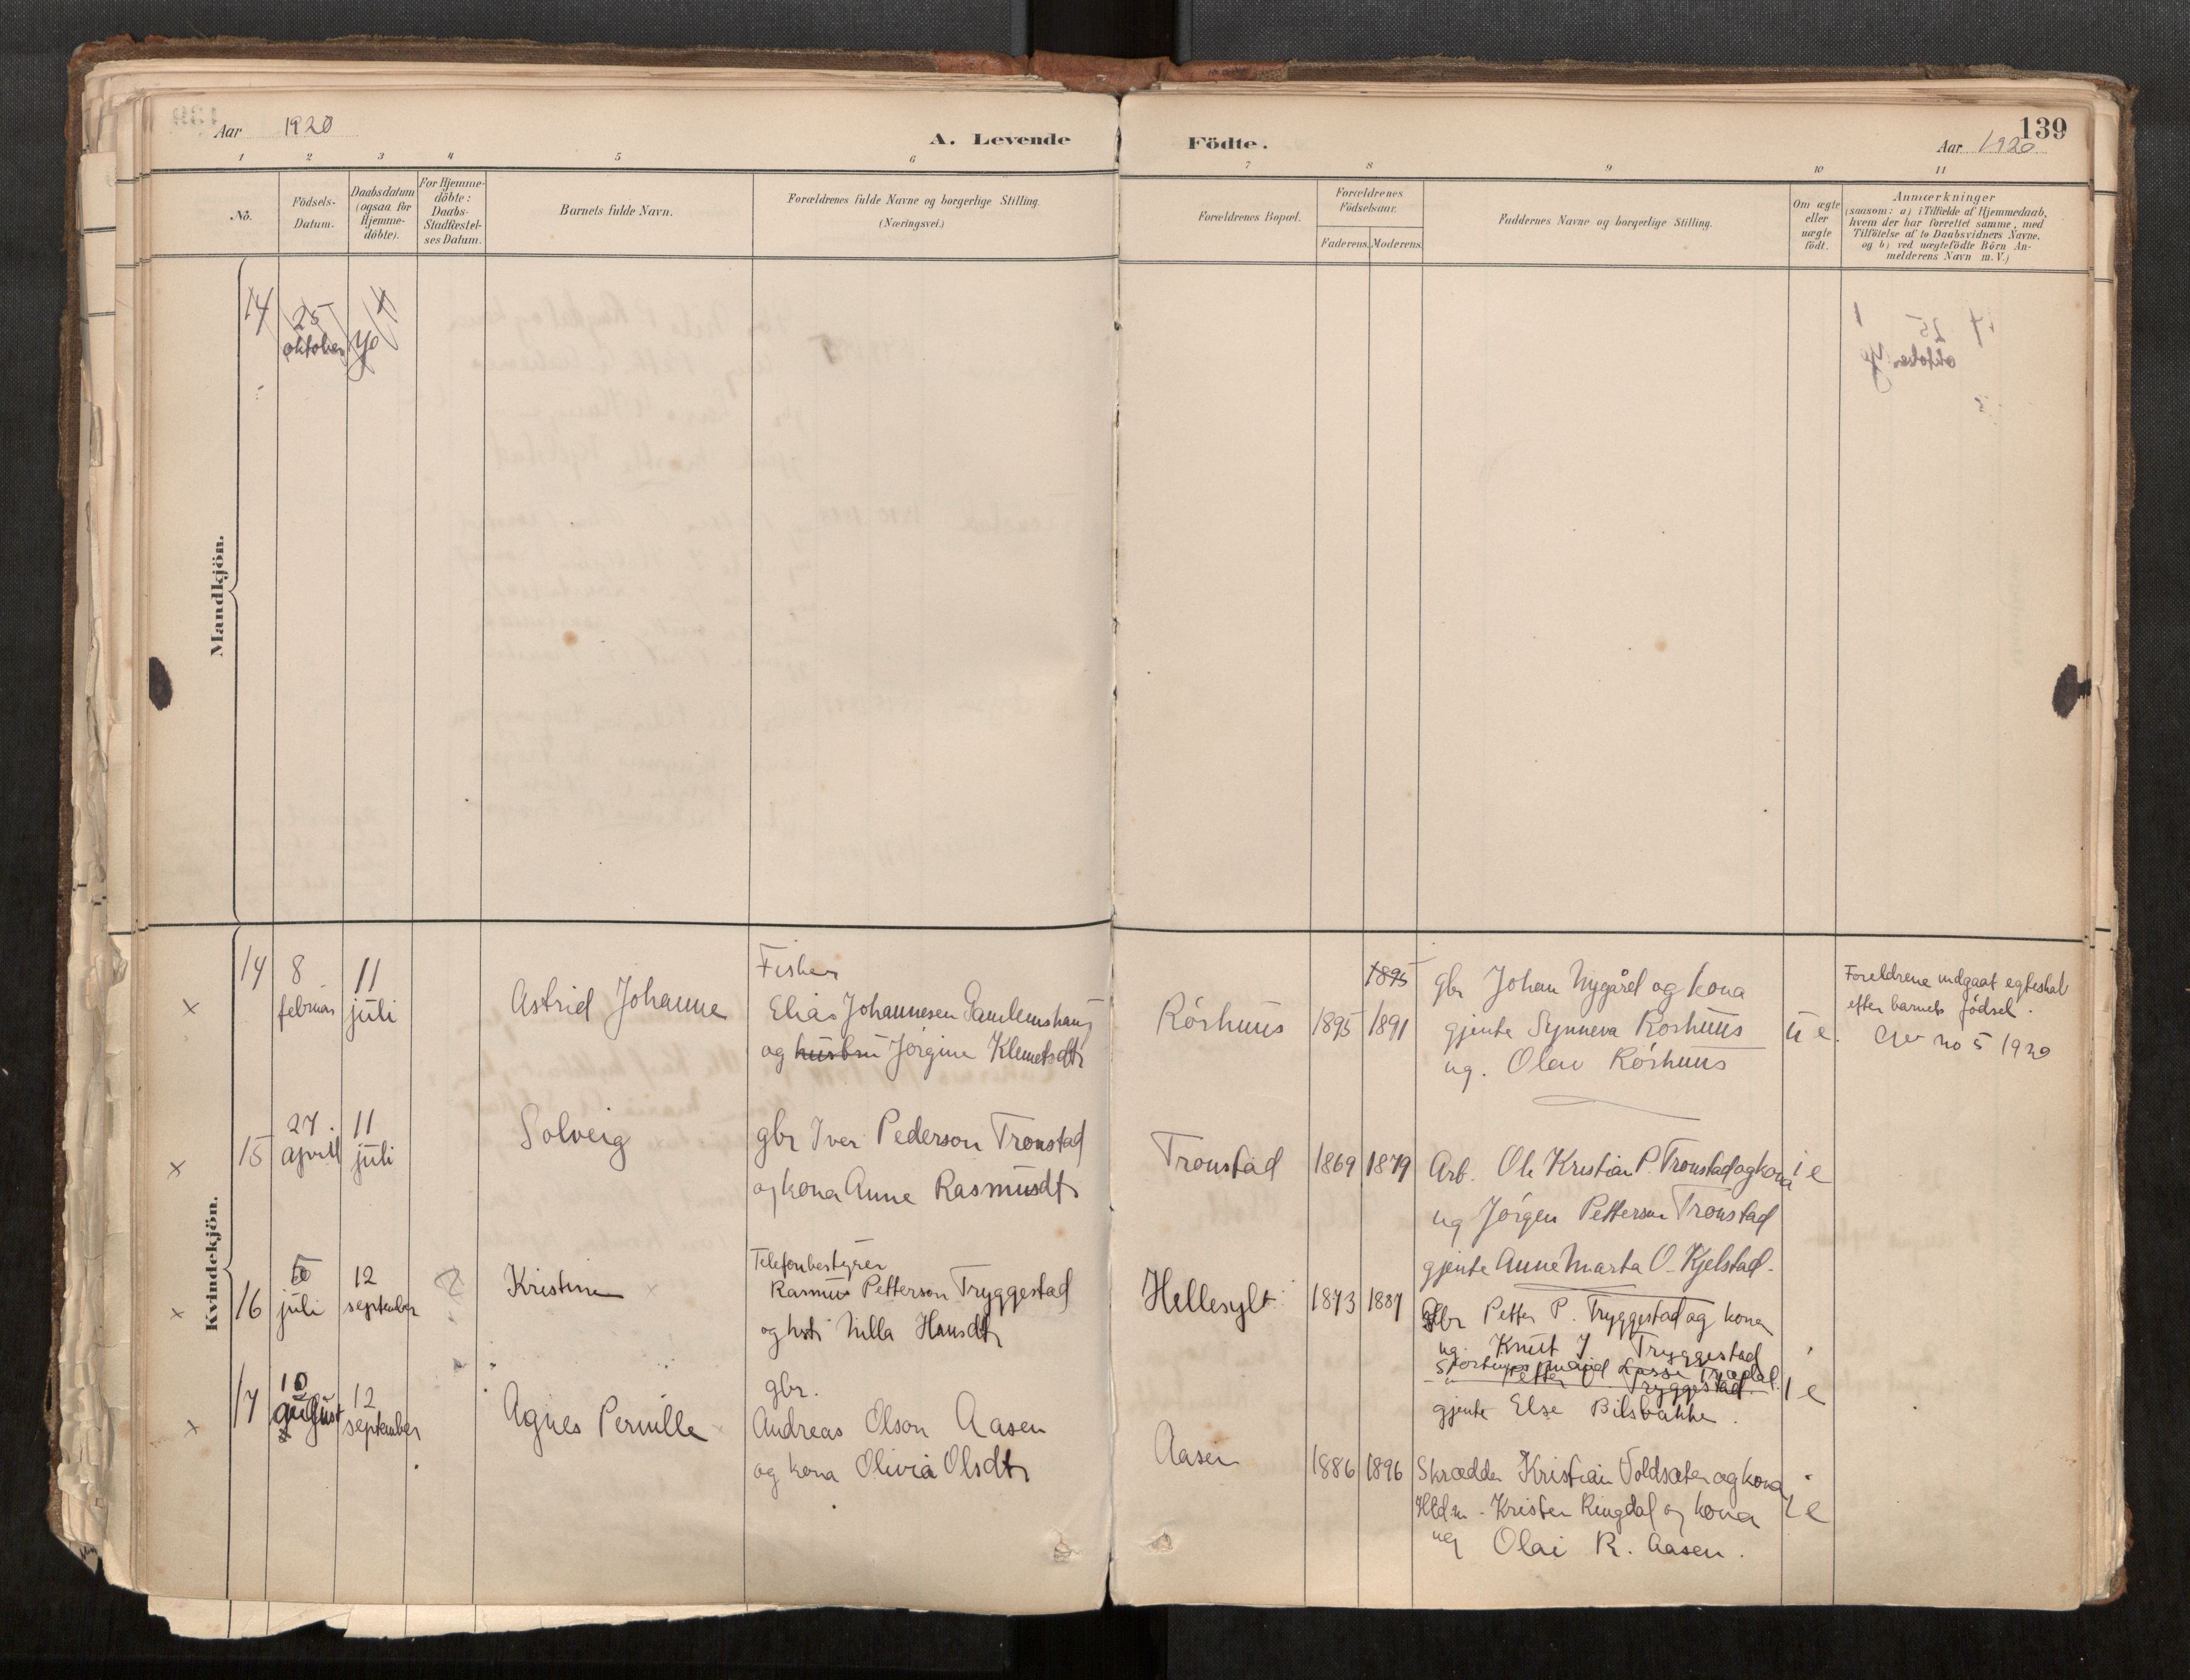 139
Aar 1920
A. Levende Födte.
Aar 1920
1 2 3 4 5 6 7 8 9 10 11
No.
Födsels-
Datum.
Daabsdatum
(ogsaa for
Hjemme-
döbte).
For Hjemme-
döbte:
Daabs-
Stadfæstel-
ses Datum.
Barnets fulde Navn.
Forældrenes fulde Navne og borgerlige Stilling.
(Næringsvei.)
Forældrenes Bopæl.
Forældrenes
Födselsaar.
Faderens. Moderens.
Faddernes Navne og borgerlige Stilling.
Om ægte
eller
uægte
födt.
Anmærkninger
(saasom: a) i Tilfælde af Hjemmedaab,
hvem der har forrettet samme, med
Tilföielse af to Daabsvidners Navne,
og b) ved uægtefödte Börn An-
melderens Navn m. V.)
Mandkjön.
14 25
oktober
Kvindekjön.
14 8
februar
11
juli
Astrid Johanne
Fisker
Elias Johannesen Gamlemshaug
og husbru Jørgine Klemetsdtr
Rørhuus
1895
1895 1891
gbr Johan Nygård og kona
gjente Synneva Rørhuus
ug. Olav Rørhuus
u e.
Foreldrene indgaat egteskab
efter barnets fødsel.
no 5 1920
15 27.
april
11
juli
Solveig
gbr Iver Pederson Tronstad
og kona Anne Rasmusdtr
Tronstad
1869 1879
Arb. Ole Kristian P. Tronstad og kona
ug Jørgen Petterson Tronstad
gjente Anne Marta O. Kjelstad.
i e
16
juli
12
september
Kristine
Telefonbestyrer
Rasmus Petterson Tryggestad
og hst Nilla Hansdtr
Hellesylt
1873 1887
Gbr Petter P. Tryggestad og kona
ug. Knut J. Tryggestad
Petter Tryggestad
gjente Else Bilsbakke.
i e
17 10
august
12
september
Agnes Pernille
gbr.
Andreas Olson Aasen
og kona Olivia Olsdtr
Aasen
1886 1896
Skrædder Kristian Voldsæter og kona
Hldm. Kristen Ringdal og kona
ug Olai R. Aasen.
i e